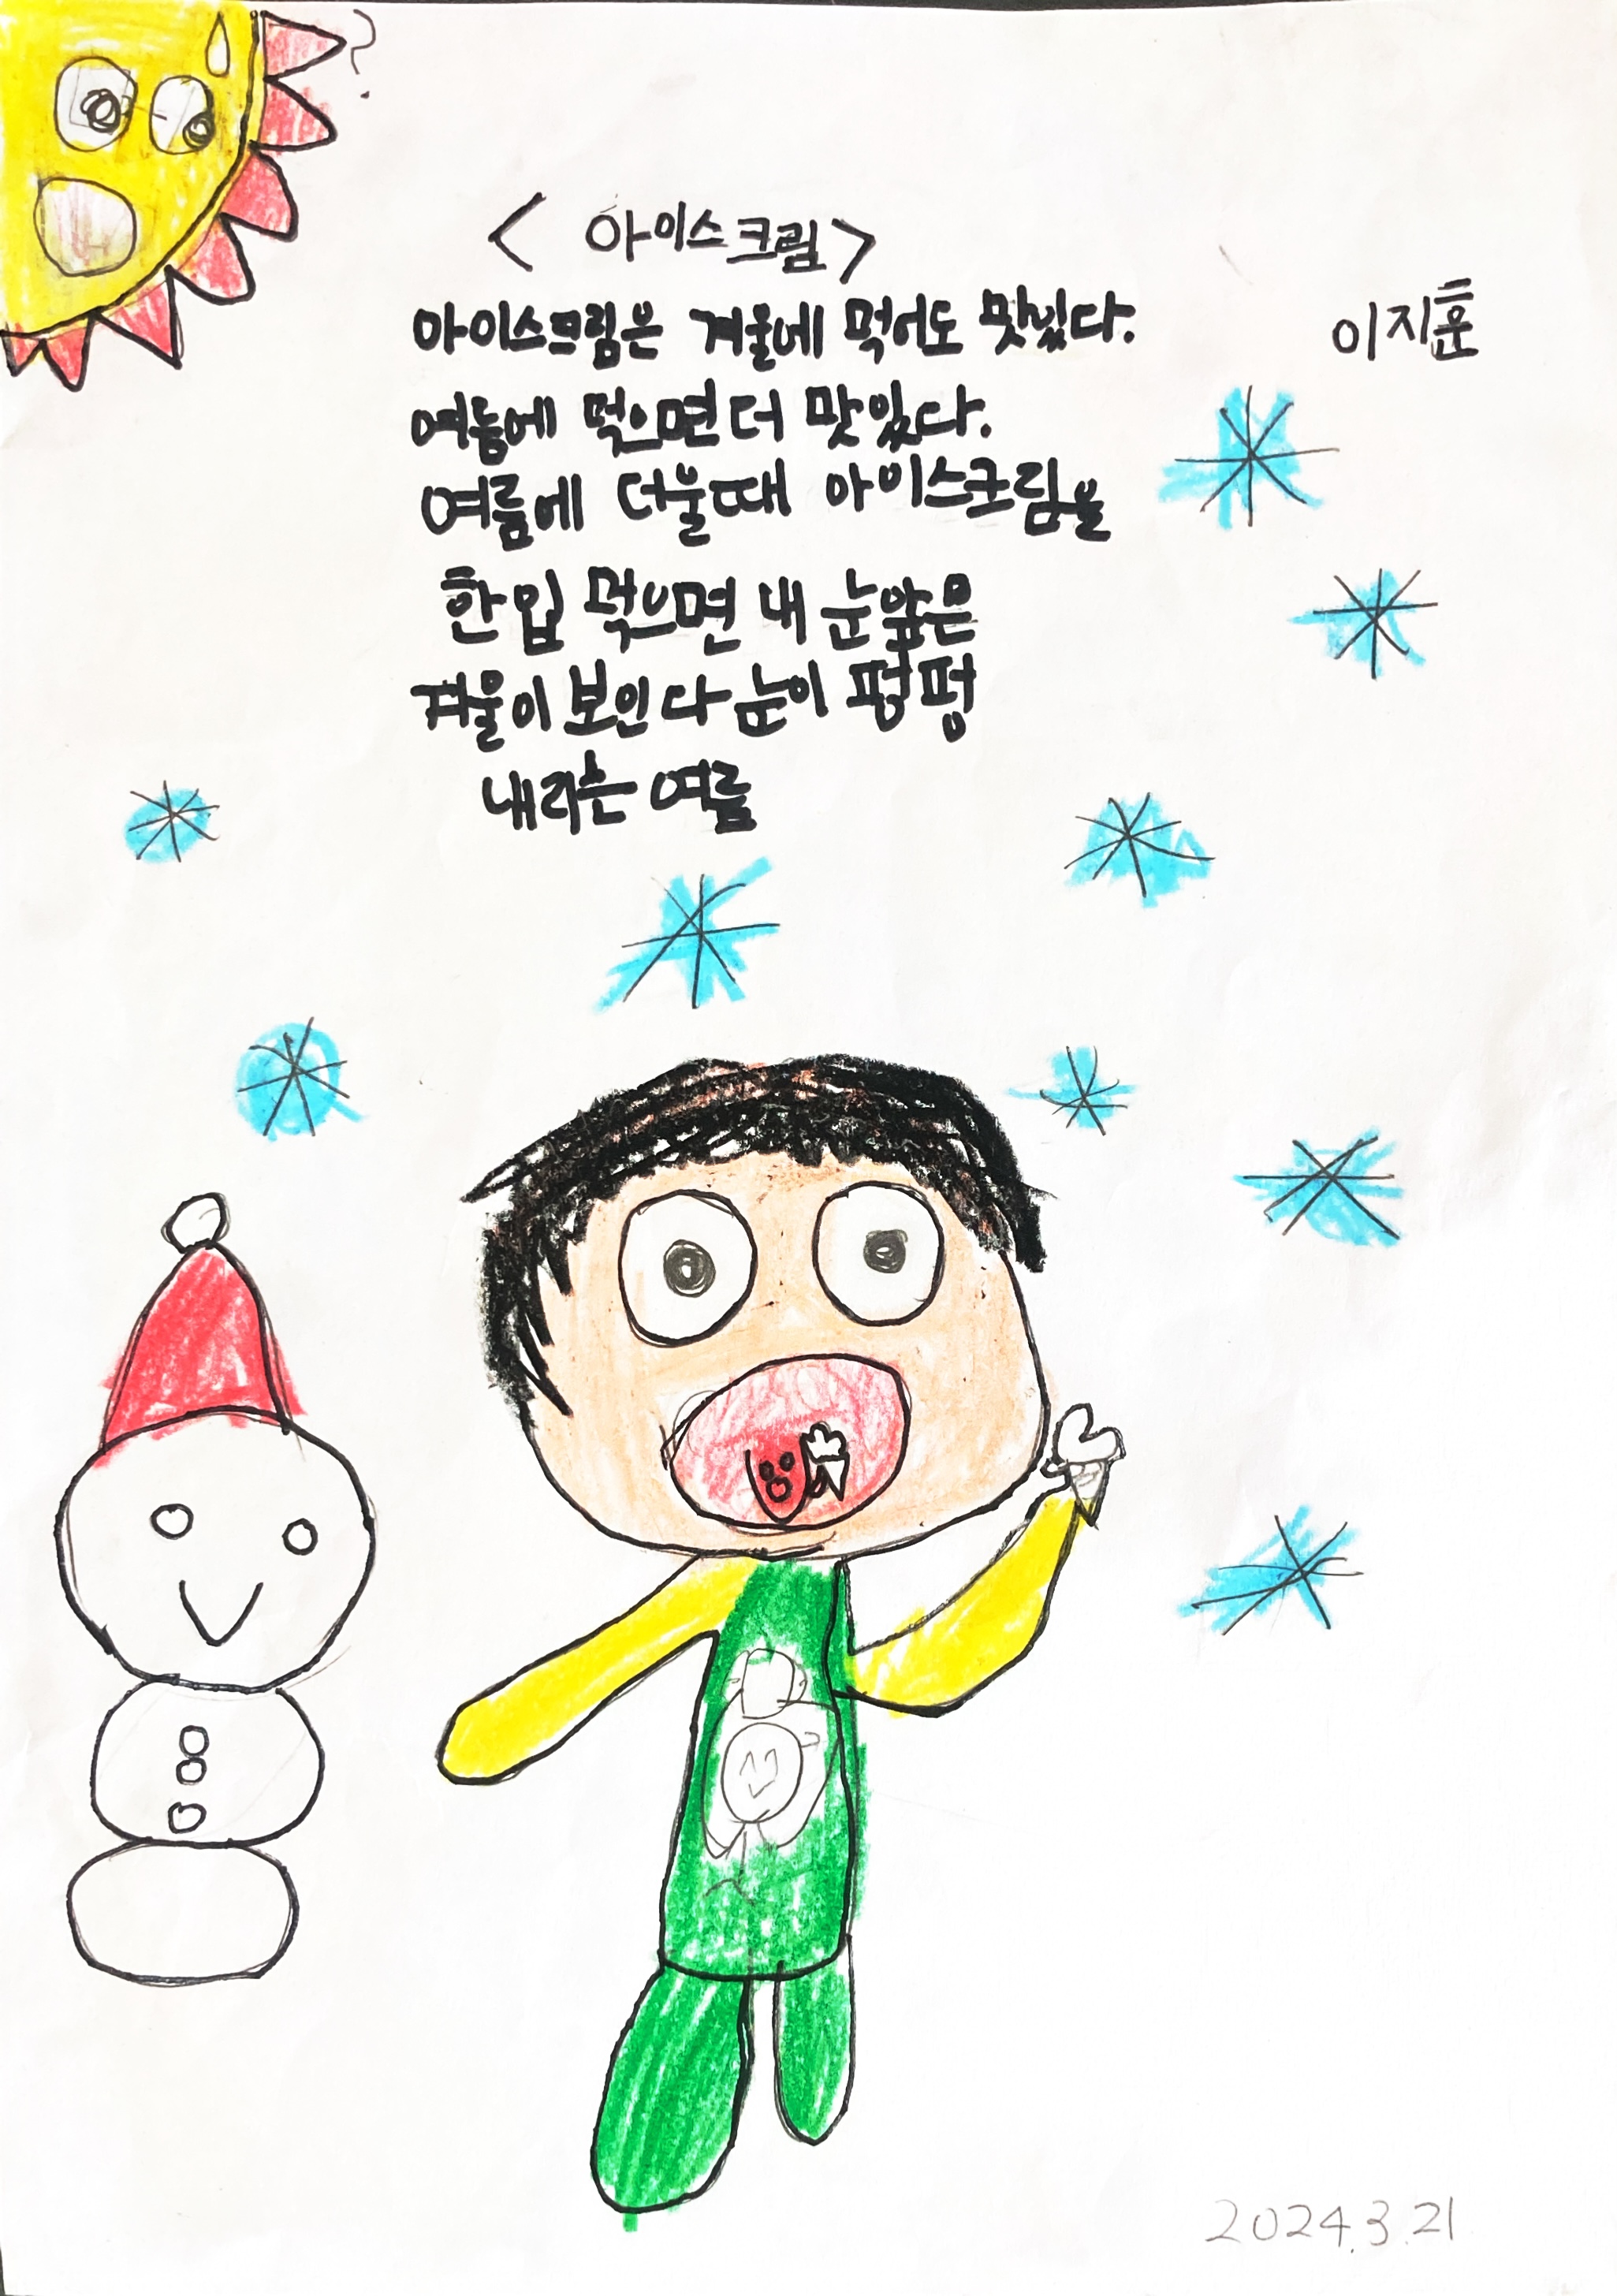 < 아이스크림 >
아이스크림은 겨울에 먹어도 맛있다.
이지훈
여름에 먹으면 더 맛있다.
여름에 더울때 아이스크림을
한입 먹으면 내 눈앞은
겨울이 보인다 눈이 펑펑
내리는 여름
2024.3.21